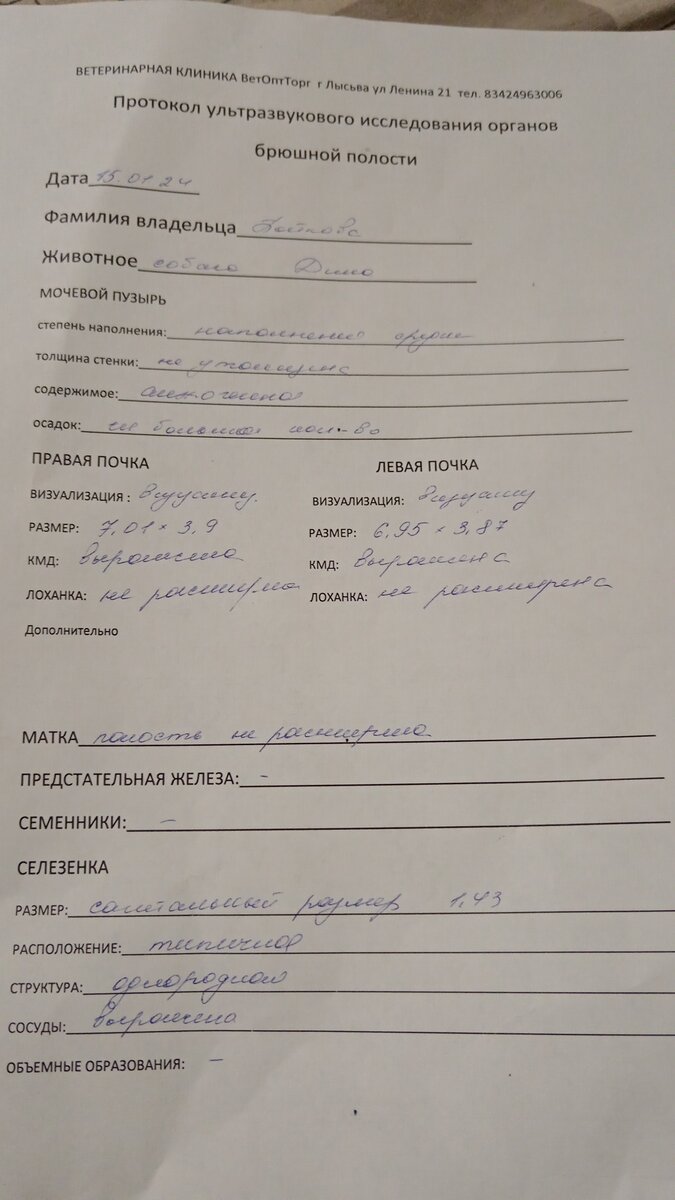 ВЕТЕРИНАРНАЯ КЛИНИКА ВетОптТорг г Лысьва ул Ленина 21 тел. 83424963006
Протокол ультразвукового исследования органов
брюшной полости
Дата 15.01 24
Фамилия владельца
Животное собака
МОЧЕВОЙ ПУЗЫРЬ
степень наполнения: наполнение средне
толщина стенки: не утолщена
содержимое: анэхогенное
осадок: не большое кол-во
ПРАВАЯ ПОЧКА ЛЕВАЯ ПОЧКА
ВИЗУАЛИЗАЦИЯ : ВИЗУАЛИЗАЦИЯ:
РАЗМЕР: 7,01 × 3,9 РАЗМЕР: 6,95 × 3,87
КМД: выражена КМД: выражена
ЛОХАНКА: не расширена ЛОХАНКА: не расширена
Дополнительно
МАТКА полость не расширена
ПРЕДСТАТЕЛЬНАЯ ЖЕЛЕЗА: -
СЕМЕННИКИ: -
СЕЛЕЗЕНКА
РАЗМЕР: сагитальный размер 1,43
РАСПОЛОЖЕНИЕ: типичное
СТРУКТУРА: однородная
СОСУДЫ: выражены
ОБЪЕМНЫЕ ОБРАЗОВАНИЯ: -